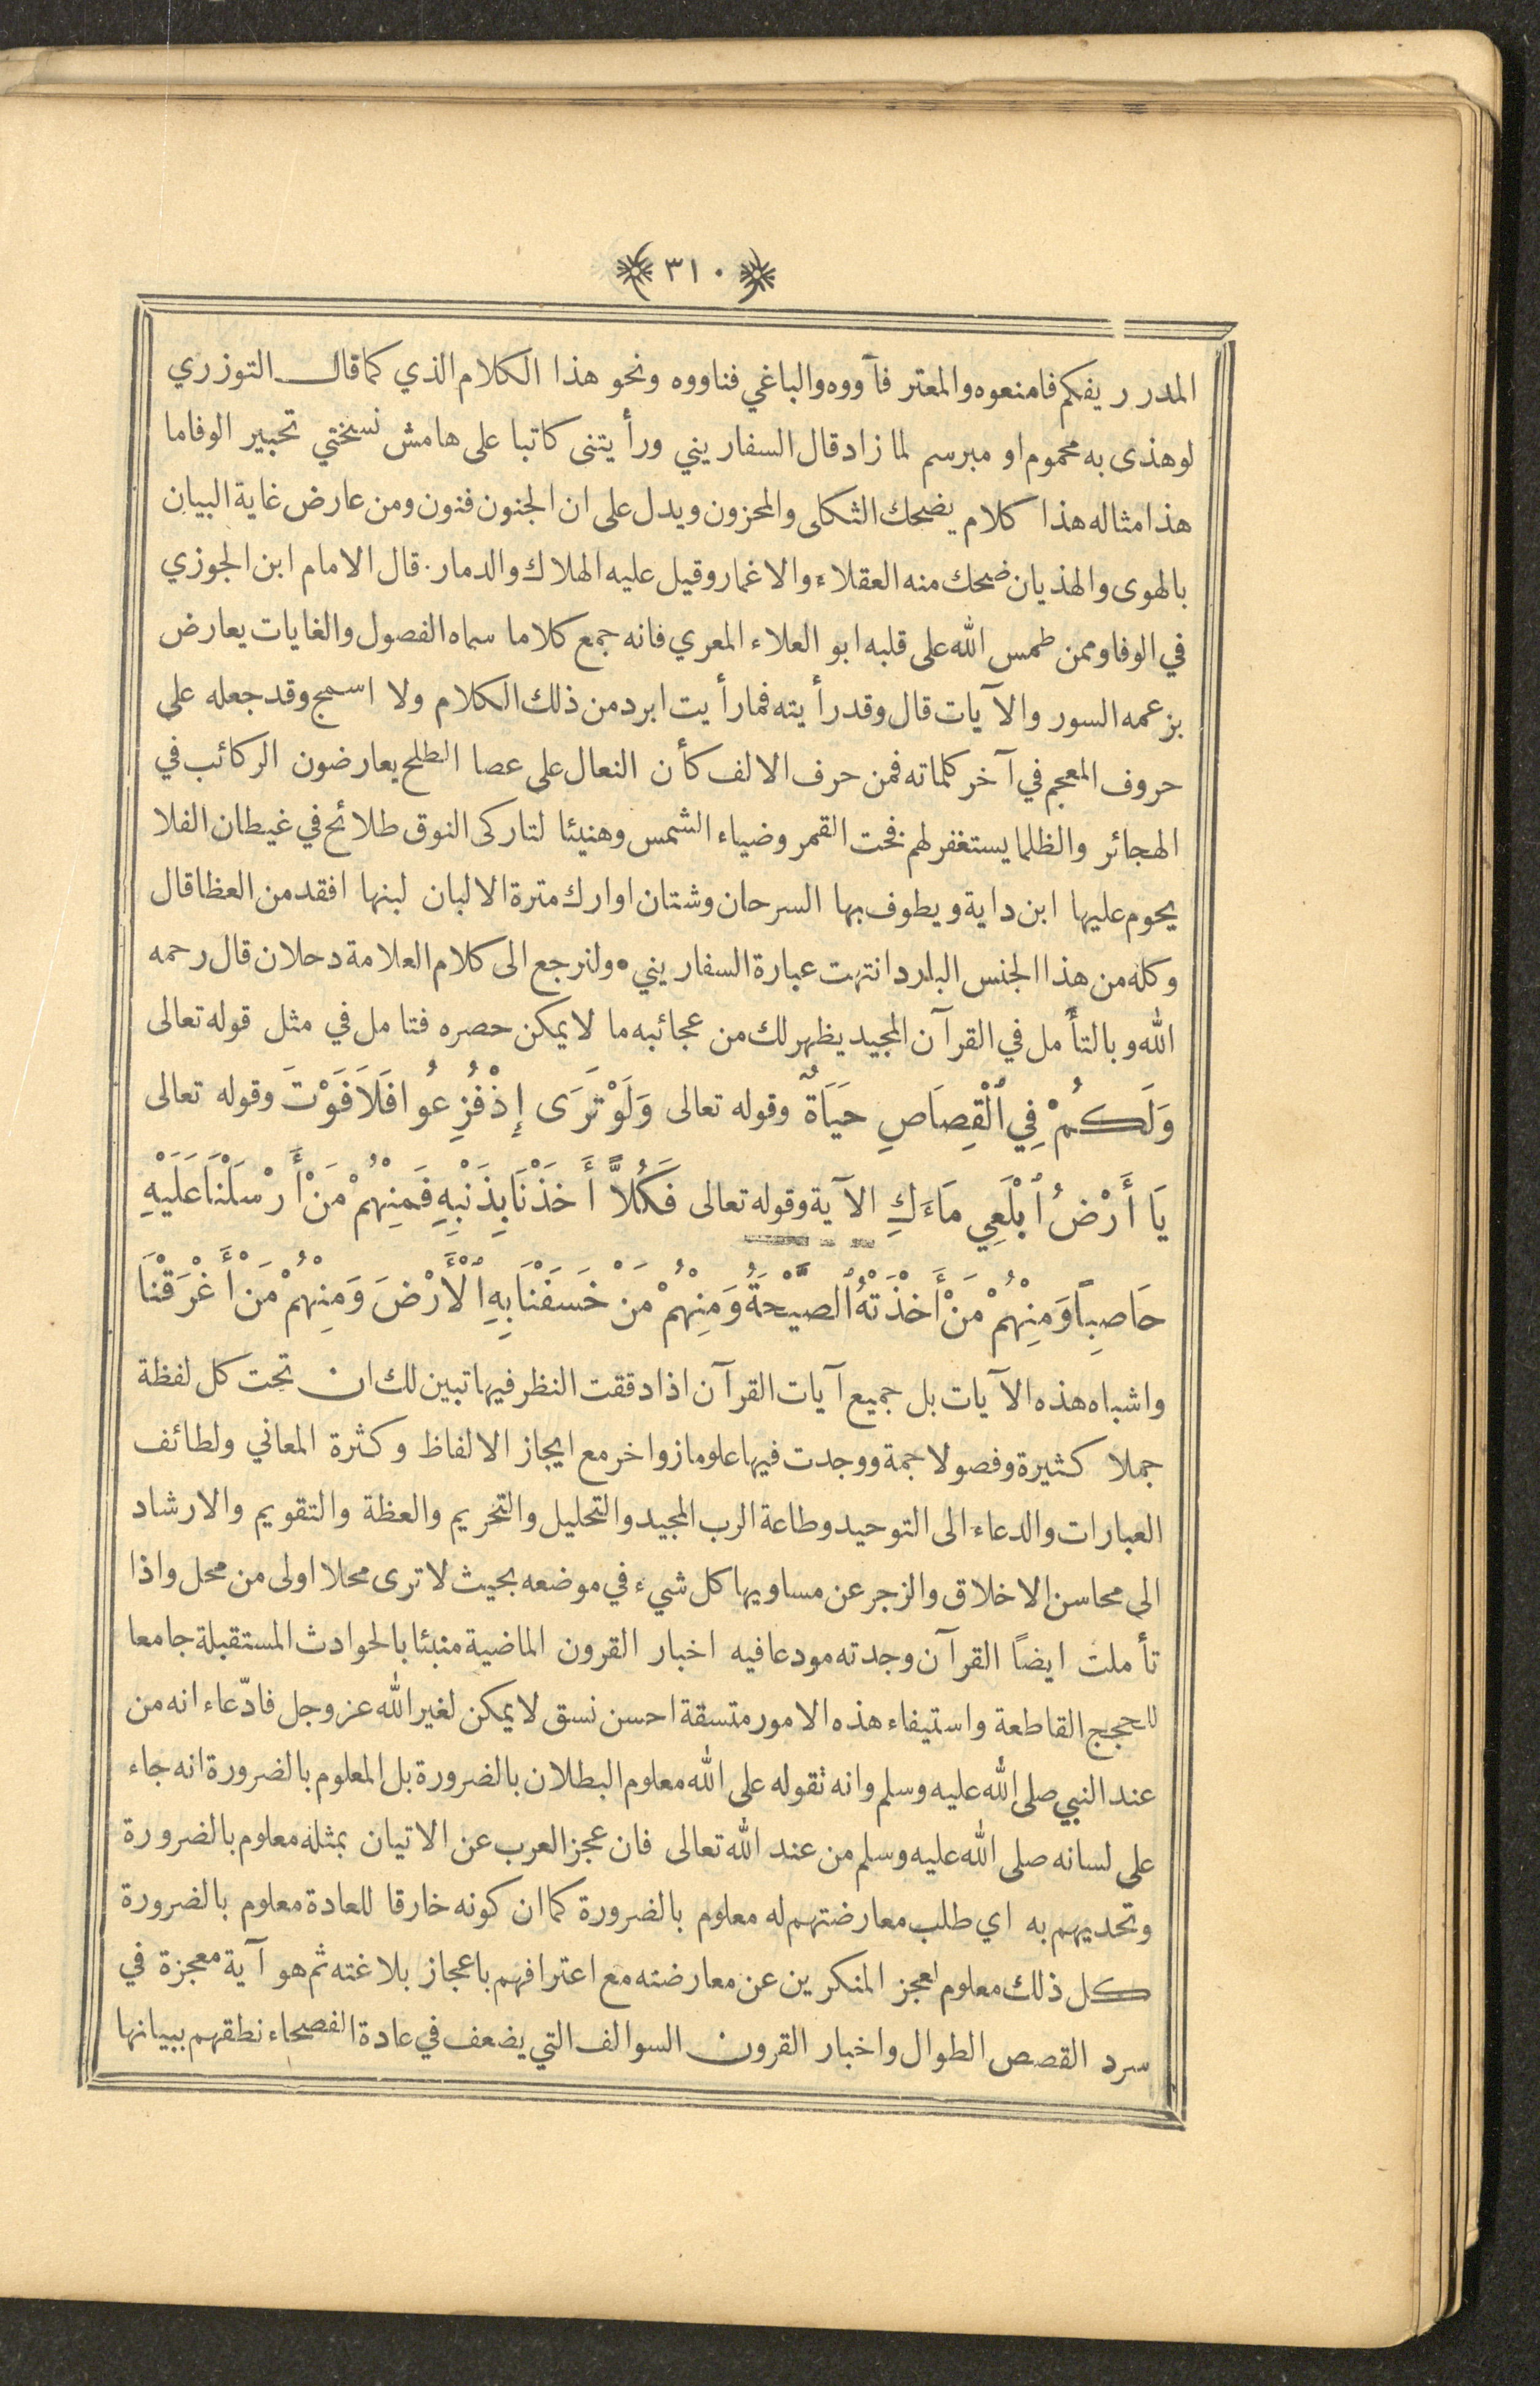 ٣١٠
المدر ر يفكم فامنعوه والمعتر فآووه والباغي فناووه ونحو هذا الكلام الذي كما قال التوزري
لو هذى به محموم او مبرسم لما زاد قال السفاريني ورأيتنى كاتبا على هامش نسختي تحبير الوفا ما
هذا مثاله هذا كلام يضحك الثكلى والمحزون ويدل على ان الجنون فنون ومن عارض غاية البيان
بالهوى والهذيان ضحك منه العقلاء والاغمار وقيل عليه الهلاك والدمار. قال الامام ابن الجوزي
في الوفا وممن طمس الله على قلبه ابو العلاء المعري فانه جمع كلاما سماه الفصول والغايات يعارض
بزعمه السور والآيات قال وقد رأيته فما رأيت ابرد من ذلك الكلام ولا اسمج وقد جعله على
حروف المعجم في آخر كلماته فمن حرف الالف كأن النعال على عصا الطلح يعارضون الركائب في
الهجائر والظلما يستغفر لهم فخت القمر وضياء الشمس وهنيئا لتاركى النوق طلائح في غيطان الفلا
يحوم عليها ابن داية ويطوف بها السرحان وشتان اوارك مترة الالبان لبنها افقد من العظا قال
وكله من هذا الجنس البارد انتهت عبارة السفاريني • ولنرجع الى كلام العلامة دحلان قال رحمه
الله وبالتأمل في القرآن المجيد يظهر لك من عجائبه ما لا يمكن حصره فتامل في مثل قوله تعالى
وَلَكُمْ فِي ٱلْقِصَاصِ حَيَاةٌ وقوله تعالى وَلَوْ تَرَى إِذْ فُزِعُوا فَلَا فَوْتَ وقوله تعالى
يَا أَرْضُ ٱبْلَعِي مَاءَكِ الآية وقوله تعالى فَكُلاًّ أَخَذْنَا بِذَنْبِهِ فَمِنْهُمْ مَنْ أَرْسَلْنَا عَلَيْهِ
حَاصِبًا وَمِنْهُمْ مَنْ أَخَذَتْهُ ٱلصَّيْحَةُ وَمِنْهُمْ مَنْ خَسَفْنَا بِهِ ٱلْأَرْضَ وَمِنْهُمْ مَنْ أَغْرَقْنَا
واشباه هذه الآيات بل جميع آيات القرآن اذا دققت النظر فيها تبين لك ان تحت كل لفظة
جملا كثيرة وفصولا جمة ووجدت فيها علوما زواخر مع ايجاز الالفاظ وكثرة المعاني ولطائف
العبارات والدعاء الى التوحيد وطاعة الرب المجيد والتحليل والتحريم والعظة والتقويم والارشاد
الى محاسن الاخلاق والزجر عن مساويها كل شيء في موضعه بحيث لا ترى محلا اولى من محل واذا
تأملت ايضاً القرآن وجدته مودعا فيه اخبار القرون الماضية منبئا بالحوادث المستقبلة جامعا
للحجج القاطعة واستيفاء هذه الامور متسقة احسن نسق لا يمكن لغير الله عز وجل فادّعاء انه من
عند النبي صلى الله عليه وسلم وانه تقوله على الله معلوم البطلان بالضرورة بل المعلوم بالضرورة انه جاء
على لسانه صلى الله عليه وسلم من عند الله تعالى فان عجز العرب عن الاتيان بمثله معلوم بالضرورة
وتحديهم به اي طلب معارضتهم له معلوم بالضرورة كما ان كونه خارقا للعادة معلوم بالضرورة
كل ذلك معلوم لعجز المنكرين عن معارضته مع اعترافهم باعجاز بلاغته ثم هو آية معجزة في
سرد القصص الطوال واخبار القرون السوالف التي يضعف في عادة الفصحاء نطقهم ببيانها